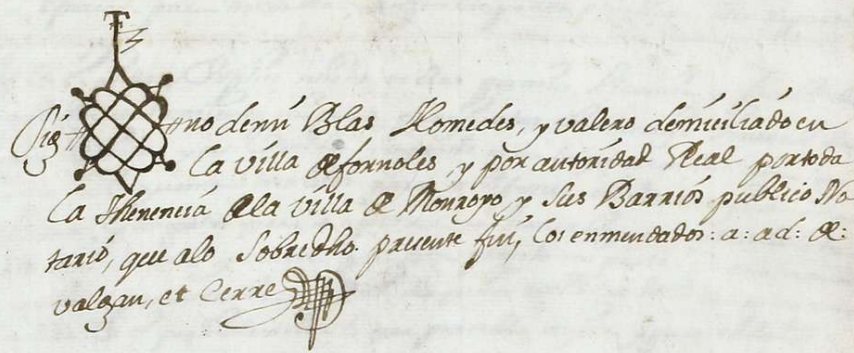 Sig no de mi Blas Homedes, y valero domiciliado en
la villa de fornoles y por autoridad Real por toda
la Thenencia de la villa de Monroyo y sus Barrios publico No
tario, que alo sobredho presente fui, los enmendados: a: ad: de:
valgan, et Cerre